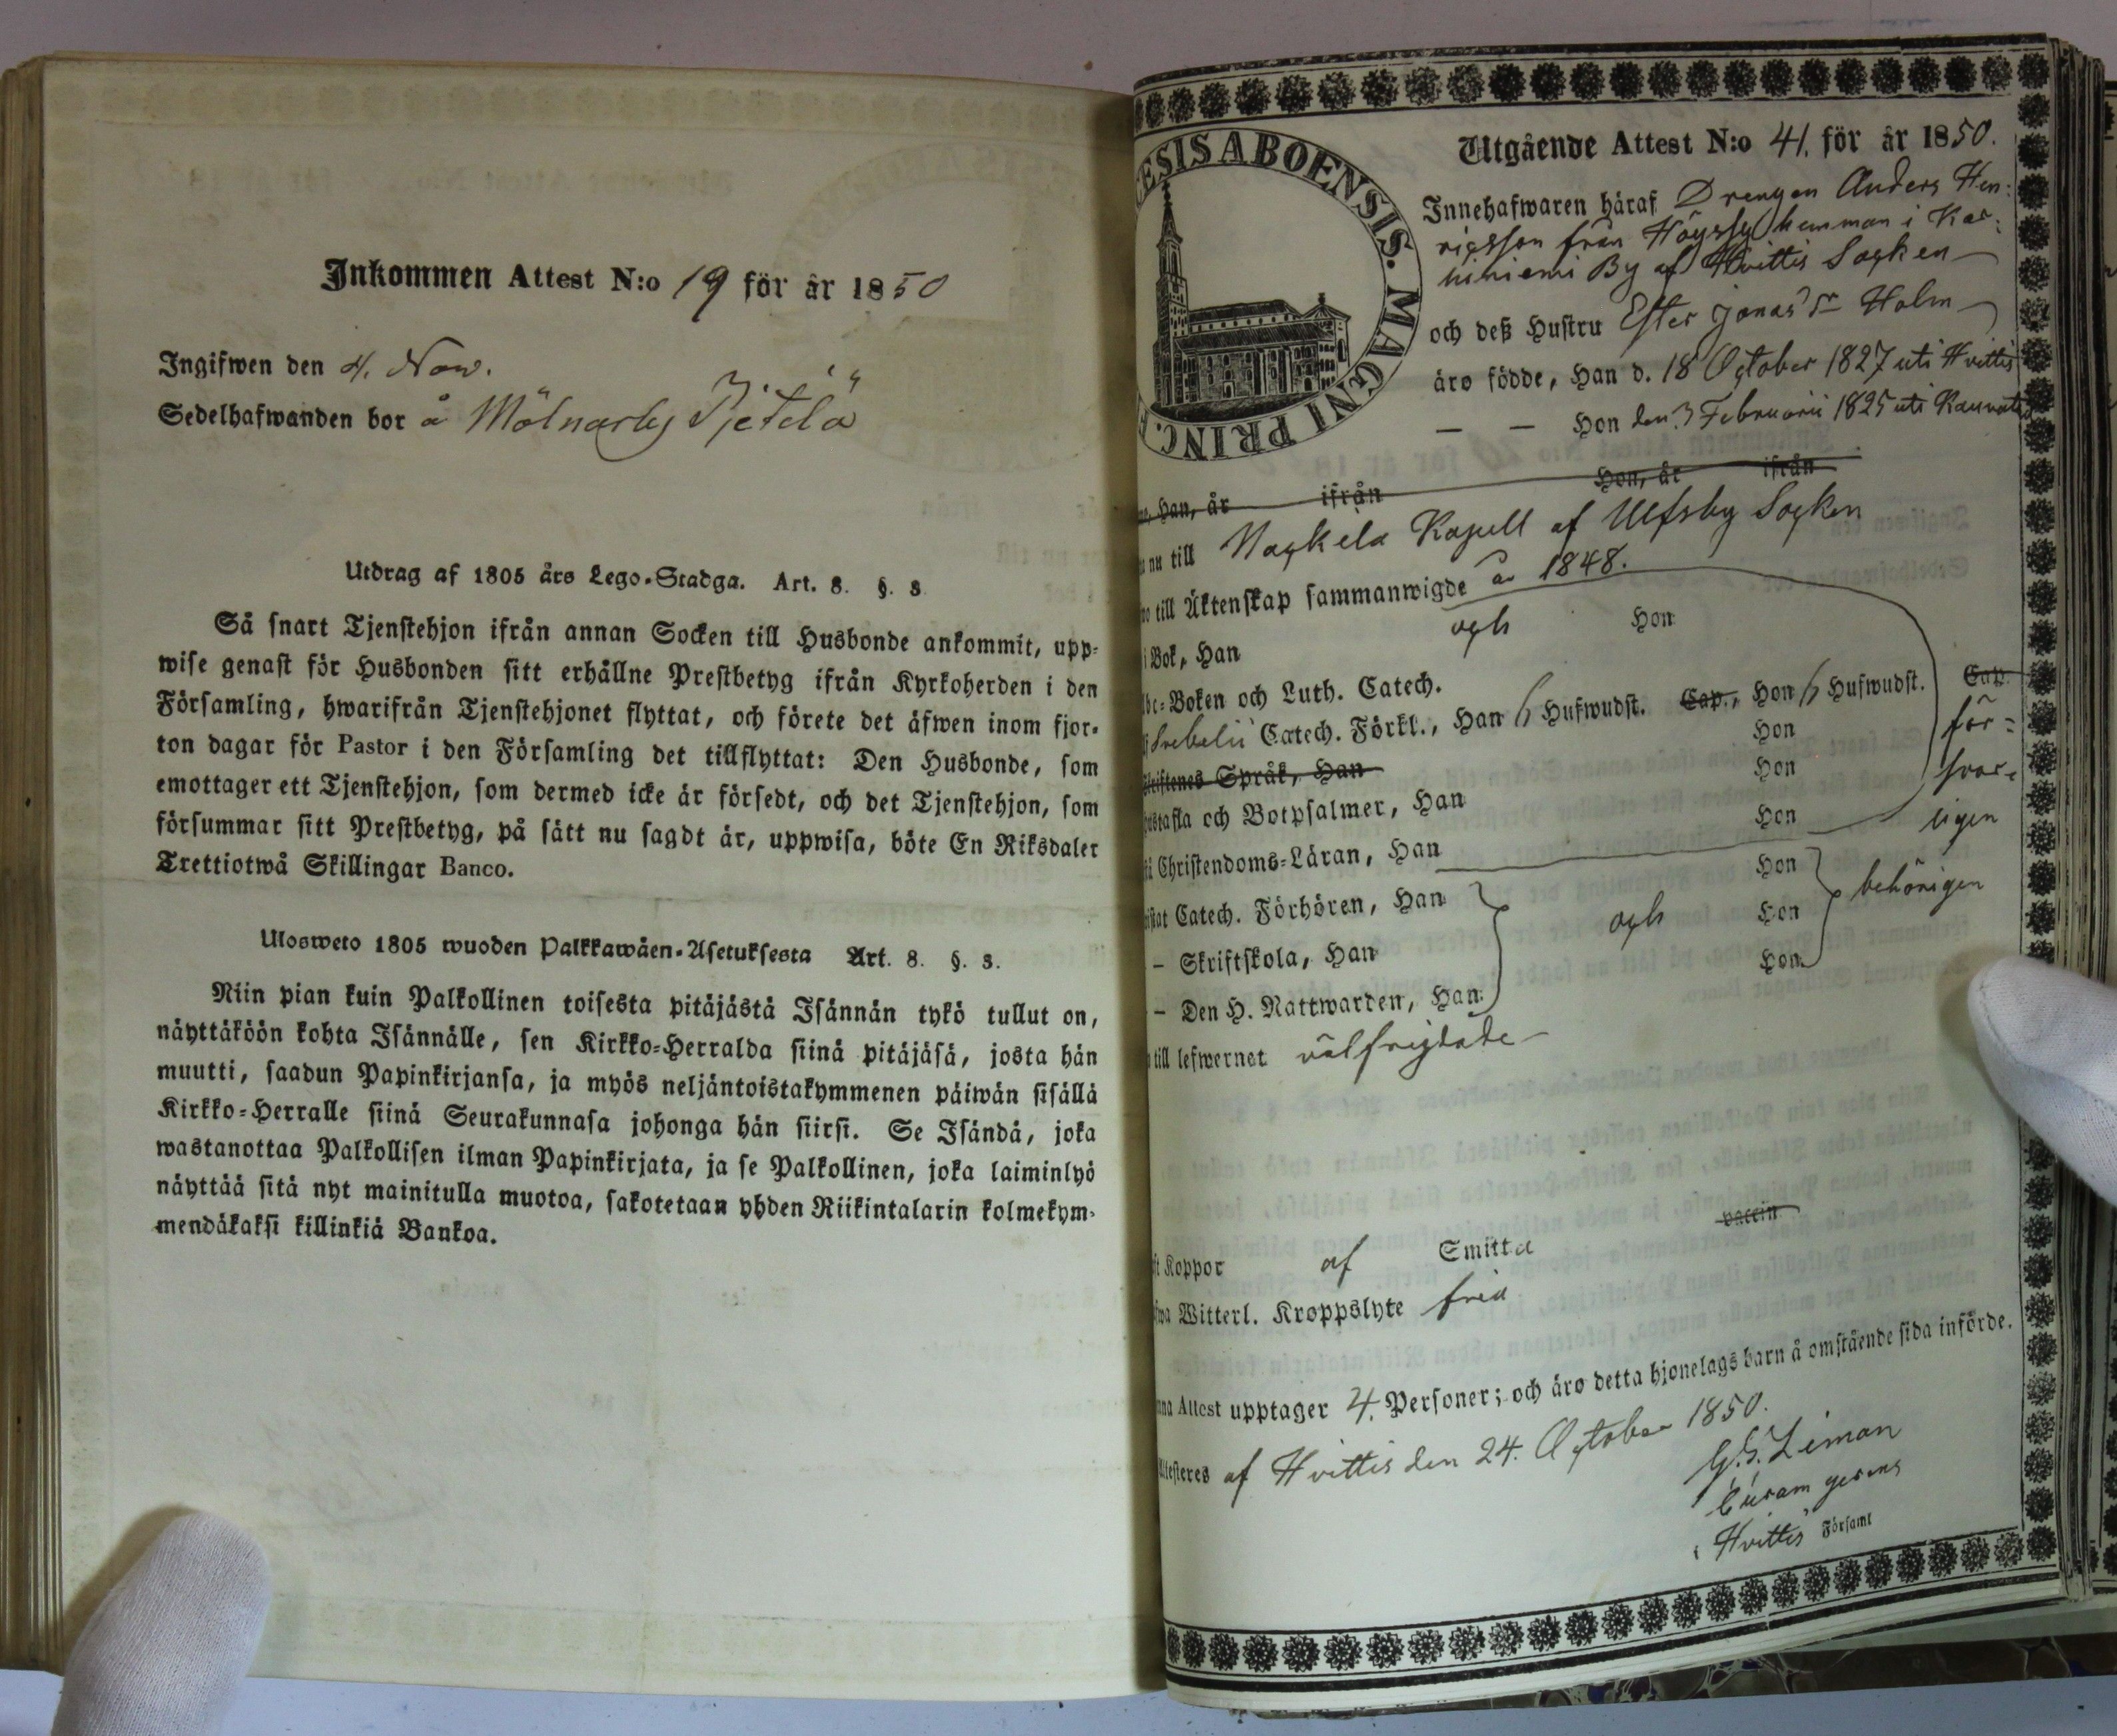 Inkommen Attest N:o 19 för år 1850
Ingifwen den 4. Now.
Sedelhafwanden bor å Mölnarby
Utdrag af 1805 års Lego-Stadga. Art. 8. §. 3
Så snart Tjenstehjon ifrån annan Socken till Husbonde ankommit, upp-
wise genast för Husbonden sitt erhållne Prestbetyg ifrån Kyrkoherden i den
Församling, hwarifrån Tjenstehjonet flyttat, och förete det äfwen inom fjor-
ton dagar för Pastor i den Församling det tillflyttat: Den Husbonde, som
emottager ett Tjenstehjon, som dermed icke är försedt, och det Tjenstehjon, som
försummar sitt Prestbetyg, på sätt nu sagdt är, uppwisa, böte En Riksdaler
Trettiotwå Skillingar Banco.
Ulosweto 1805 wuoden Palkkawäen-Asetuksesta Art. 8. §. 3.
Niin pian kuin Palkollinen toisesta pitäjästä Isännän tykö tullut on,
näyttäköön kohta Isännälle, sen Kirkko-Herralda siinä pitäjäsä, josta hän
muutti, saadun Papinkirjansa, ja myös neljäntoistakymmenen päiwän sisällä
Kirkko-Herralle siinä Seurakunnasa johonga hän siirsi. Se Isändä, joka
wastanottaa Palkollisen ilman Papinkirjata, ja se Palkollinen, joka laiminlyö
näyttää sitä nyt mainitulla muotoa, sakotetaan yhden Riikintalarin kolmekym-
mendäkaksi killinkiä Bankoa.
ESIS ABOENSIS. MAGNI PRINC.
Utgående Attest N:o 41. för år 1850.
Innehafwaren häraf Drengen Anders Hen-
ricsson från Höyssy hemman i Kar-
hiniemi By af Hvittis Socken
och deß Hustru Ester Jonas dr Holm
äro födde, Han d. 18 October 1827 uti Hvittis
— — Hon den 3 Februarii 1825 uti
Han, år ifrån Hon, år ifrån
nu till Nackila Kapell af Ulfsby Socken
till Äktenskap sammanwigde år 1848.
i Bok, Han och Hon
Boken och Luth. Catech.
Svebelii Catech. Förkl., Han 6 Hufwudst. Cap., Hon 6 Hufwudst. Cap.
Hon för-
Skriftenes Språk, Han Hon svar-
Hustafla och Botpsalmer, Han Hon ligen
Christendoms-Läran, Han Hon
Catech. Förhören, Han och Hon behörigen
– Skriftskola, Han Hon
– Den H. Nattwarden, Han Hon
till lefwernet välfrejdade
vaccin
Koppor af Smitta
Witterl. Kroppslyte fria
Attest upptager 4. Personer; och äro detta hjonelags barn å omstående sida införde.
Attesteres af Hvittis den 24. October 1850.
G. S. Liman
Curam gerens
i Hvittis Församl